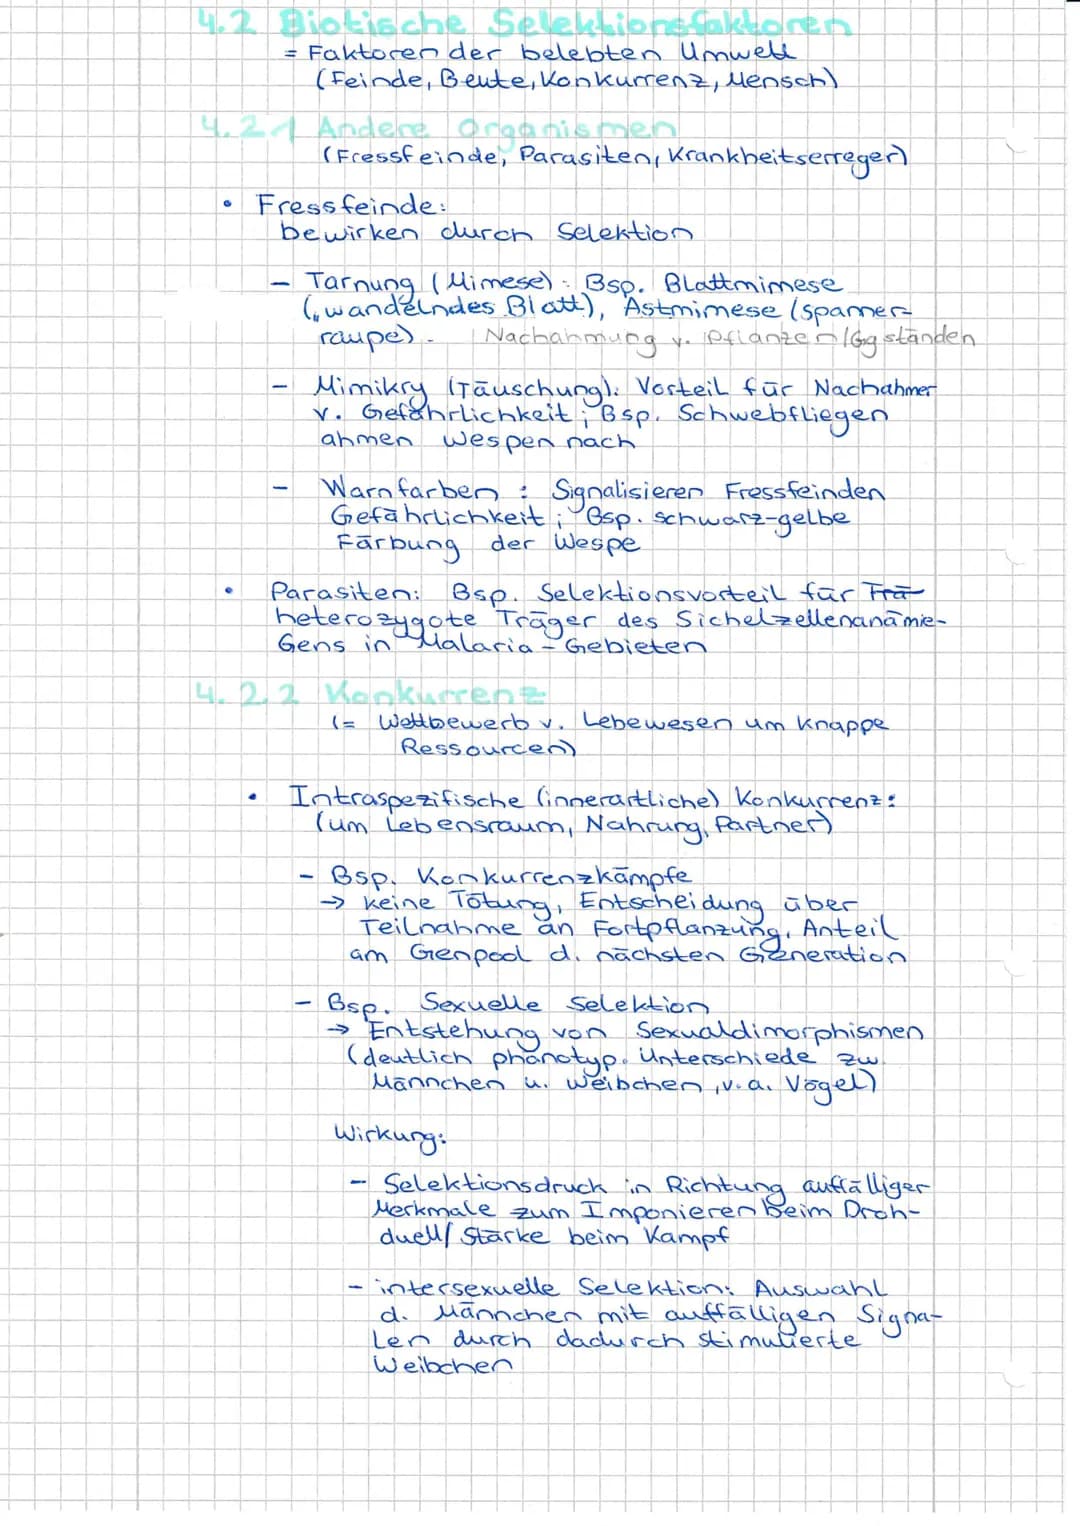 4.2 Biotische Selektionsfaktoren
= Faktoren der belebten Umwelt
(Feinde, Beute, Konkurrenz, Mensch)
4.2.1 Andere Organismen
(Fressfeinde, Parasiten, Krankheitserreger)
• Fressfeinde:
bewirken durch Selektion
- Tarnung (Mimese): Bsp. Blattmimese
(„wandelndes Blatt), Astmimese (Spanner-
raupe). Nachahmung v. Pflanzen/Ggständen
- Mimikry (Täuschung): Vorteil für Nachahmer
v. Gefährlichkeit; Bsp. Schwebfliegen
ahmen Wespen nach
- Warnfarben: Signalisieren Fressfeinden
Gefährlichkeit; Bsp. schwarz-gelbe
Färbung der Wespe
• Parasiten: Bsp. Selektionsvorteil für Trä
heterozygote Träger des Sichelzellenanämie-
Gens in Malaria-Gebieten
4.2.2 Konkurrenz
(= Wettbewerb v. Lebewesen um knappe
Ressourcen)
• Intraspezifische (innerartliche) Konkurrenz:
(um Lebensraum, Nahrung, Partner)
- Bsp. Konkurrenzkämpfe
→ keine Tötung, Entscheidung über
Teilnahme an Fortpflanzung, Anteil
am Genpool d. nächsten Generation
- Bsp. Sexuelle Selektion
→ Entstehung von Sexualdimorphismen
(deutlich phänotyp. Unterschiede zw.
Männchen u. Weibchen, v.a. Vögel)
Wirkung:
- Selektionsdruck in Richtung auffälliger
Merkmale zum Imponieren beim Droh-
duell/ Stärke beim Kampf
- intersexuelle Selektion: Auswahl
d. Männchen mit auffälligen Signa-
len durch dadurch stimulierte
Weibchen